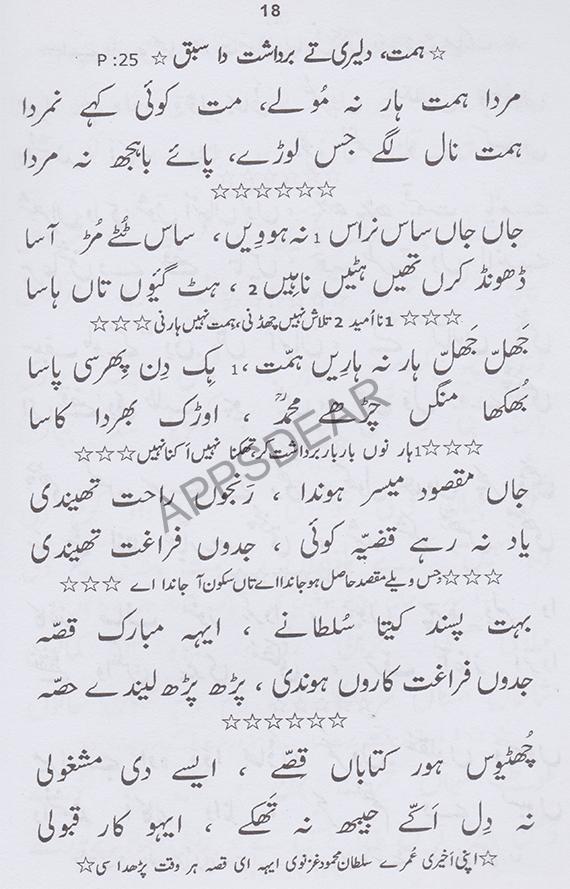 18
☆ ہمت، دلیری تے برداشت دا سبق ☆ P :25
مردا ہمت ہار نہ مُولے، مت کوئی کہے نمردا
ہمت نال لگے جس لوڑے، پائے باہجھ نہ مردا
☆☆☆☆☆☆
جاں جاں ساس نراس 1 نہ ہوویں ، ساس ٹُٹے مُڑ آسا
ڈھونڈ کرن تھیں ہٹیں ناہیں 2 ، ہٹ گیوں تاں ہاسا
☆☆☆ 1 نا اُمید 2 تلاش نہیں چھڈنی، ہمت نہیں ہارنی ☆☆☆
جَھلّ جَھلّ ہار نہ ہاریں ہمّت، 1 ہِک دِن پِھرسی پاسا
بُھکھا منگن چڑھے محمدؒ ، اوڑک بھردا کاسا
☆☆☆ 1 ہار نوں بار بار برداشت کر، تھکنا نہیں اَکنا نہیں ☆☆☆
جاں مقصود میسر ہوندا ، رَنجوں راحت تھیندی
یاد نہ رہے قضیّہ کوئی ، جدوں فراغت تھیندی
☆☆☆ جس ویلے مقصد حاصل ہو جاندا اے تاں سکون آ جاندا اے ☆☆☆
بہت پسند کیتا سُلطانے ، ایہہ مبارک قصّہ
جدوں فراغت کاروں ہوندی ، پڑھ پڑھ لیندے حصّہ
☆☆☆☆☆☆
چُھٹیوس ہور کتاباں قصے ، ایسے دی مشغولی
نہ دِل اَکّے جیبھ نہ تَھکے ، ایہو کار قبولی
☆ اپنی اَخیری عُمرے سلطان محمود غزنوی ایہہ ای قصہ ہر وقت پڑھدا سی ☆
APPSDEAR